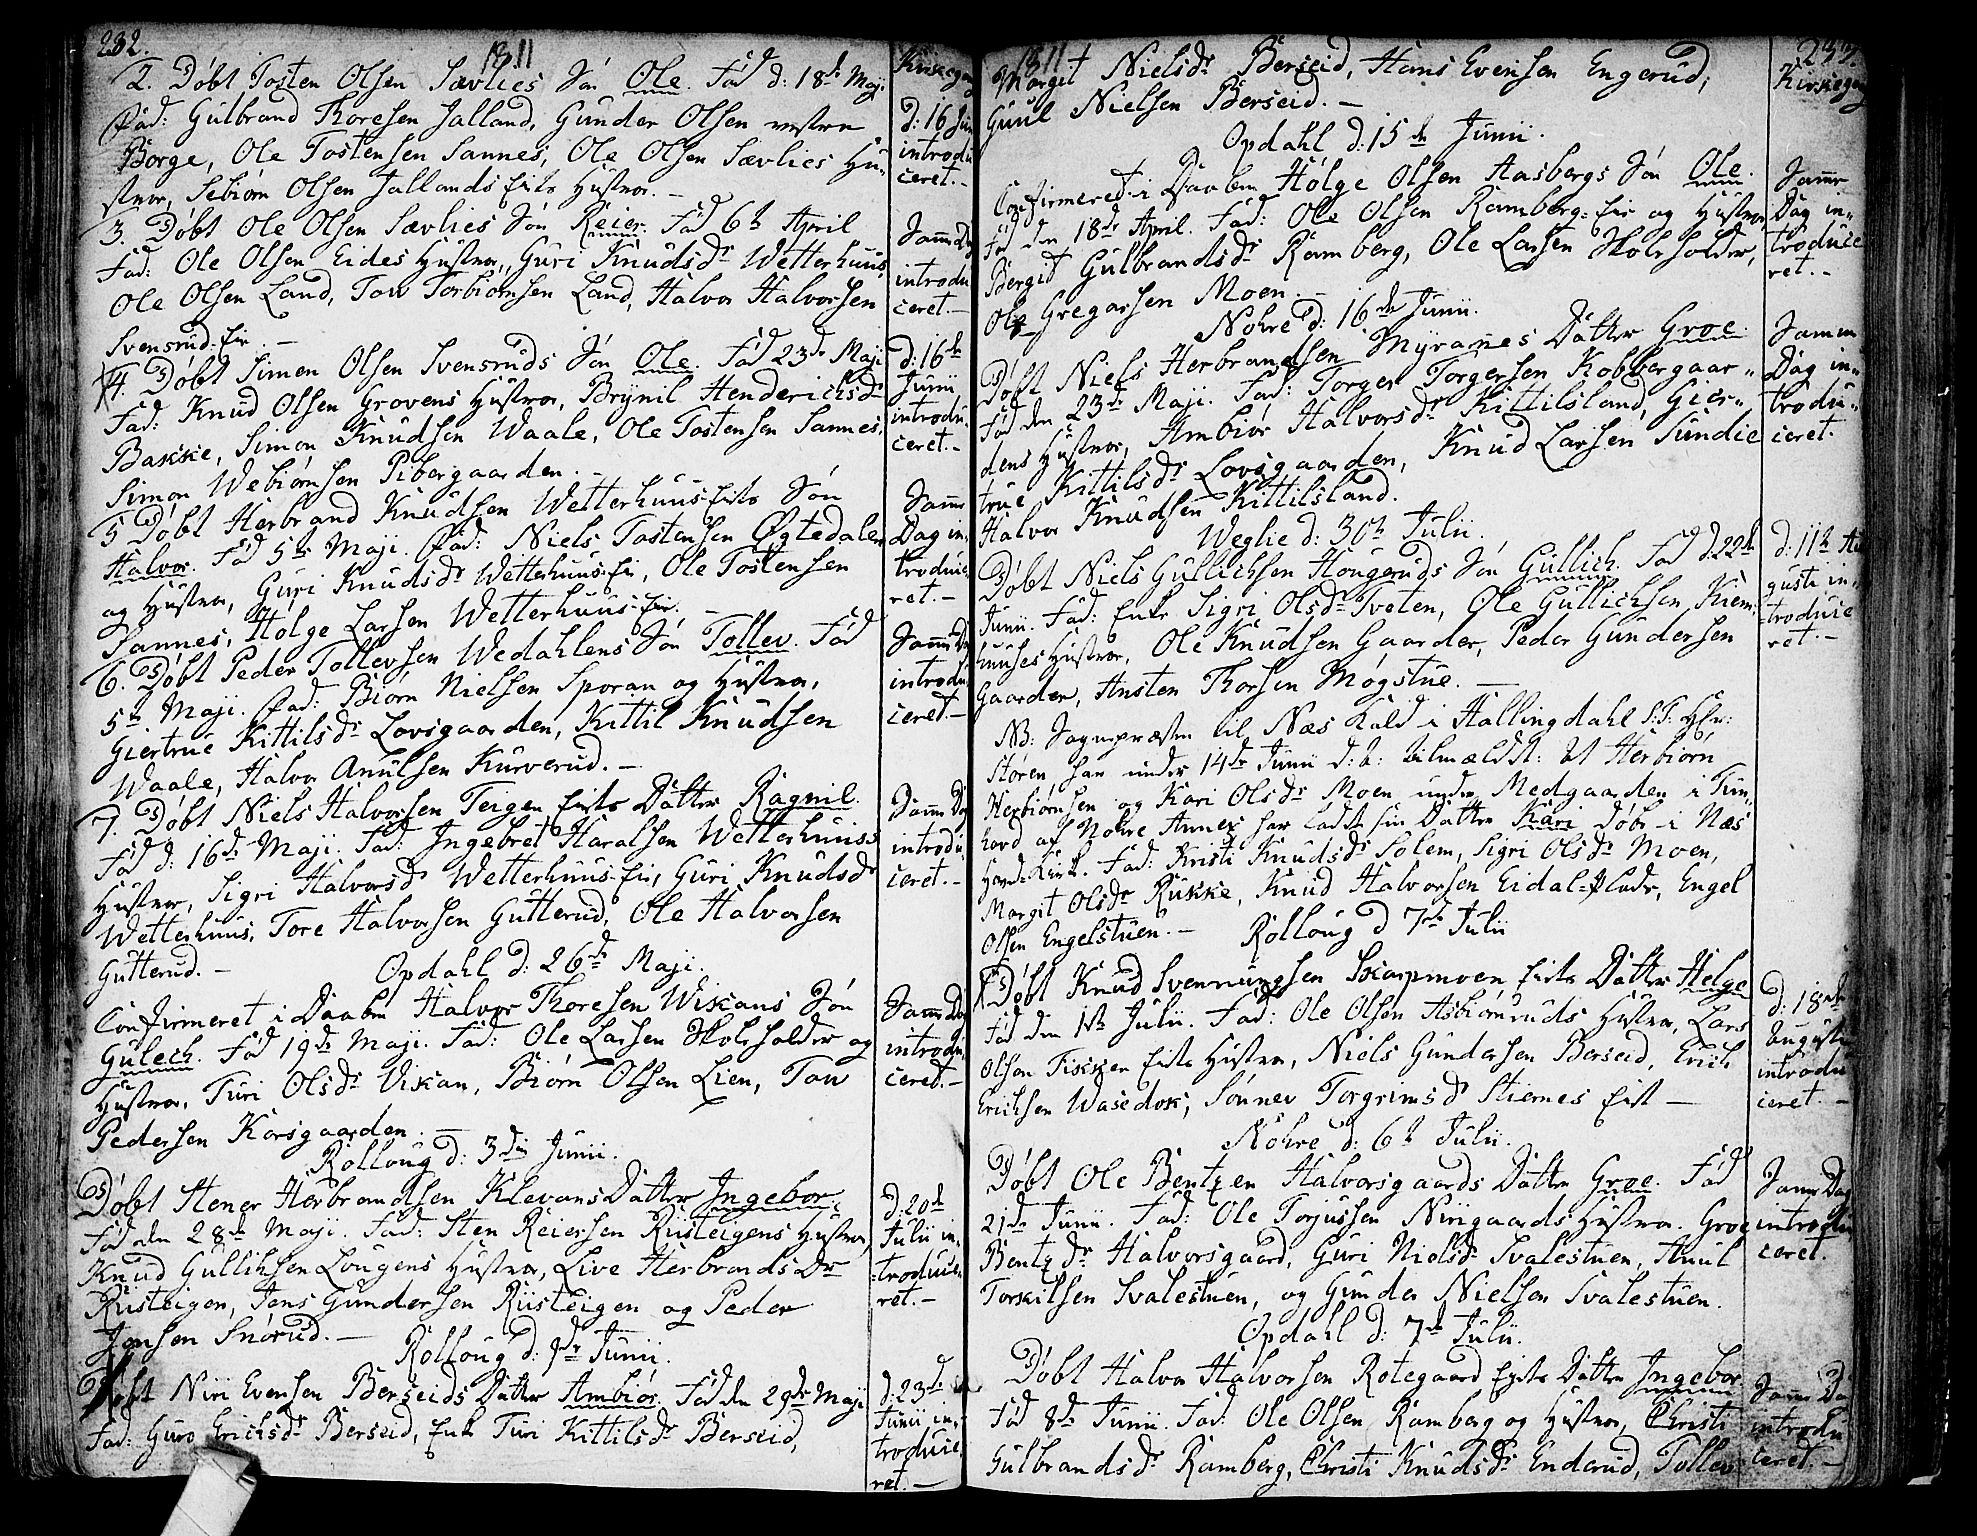 232.
1811
Kirkegang
2. Døbt Tosten Olsen Sævlies Søn Ole. Fød d: 18de Maji
Fad: Gulbrand Thoresen Jalland, Gunder Olsen vestre
Borge, Ole Tostensen Sannes, Ole Olsen Sævlies Hu-
strue, Sebiørn Olsen Jallands Eits Hustrue. -
d: 16 Jun
introdu
ceret. -
3. Døbt Ole Olsen Sævlies Søn Reier. Fød 6te April
Fad: Ole Olsen Eides Hustrue, Guri Knudsdr Wetterhuus,
Ole Olsen Land, Tow Torbiørnsen Land, Halvor Halvorsen
Svensrud-Eie. -
Samme Dag
introdu
ceret. -
4. Døbt Simen Olsen Svensruds Søn Ole. Fød 23de Maji
Fad: Knud Olsen Grovens Hustrue, Brynil Henderichsdr
Bakke, Simon Knudsen Waale, Ole Tostensen Sannes,
Simon Webiørnsen Pibergaarden. -
d: 16de
Junii
introdu-
ceret. -
5 Døbt Herbrand Knudsen Wetterhuus-Eits Søn
Halvor. Fød 5te Maji. Fad: Niels Tostensen Øgtedalen
og Hustrue, Guri Knudsdr Wetterhuus-Eie, Ole Tostensen
Sannes, Holge Larsen Wetterhuus-Eie. -
Samme
Dag in-
troduce-
ret. -
6. Døbt Peder Tollevsen Wedahlens Søn Tollev. Fød
5te Maji. Fad: Biørn Nielsen Sporan og Hustrue,
Giertrue Kittilsdr Lovsgaarden, Kittil Knudsen
Waale, Halvor Anulsen Kurverud. -
Samme Dag
introdu-
ceret -
7. Døbt Niels Halvorsen Teigen Eits Datter Ragnil.
Fød d: 16de Maji. Fad: Ingebret Haralsen Wetterhuuses
Hustrue, Sigri Halvorsdr Wetterhuus-Eie, Guri Knudsdr
Wetterhuus, Tore Halvorsen Gutterud, Ole Halvorsen
Gutterud. -
Samme Dag
introdu-
ceret. -
Opdahl d: 26de Maji.
Confirmeret i Daaben Halvor Thoresen Wikans Søn
Gulech. Fød 19de Maji. Fad: Ole Larsen Skoleholder og
Hustrue, Turi Olsdr Vikan, Biørn Olsen Lien, Tow
Pedersen Korsgaarden. -
Samme Dag
introdu-
ceret. -
Rolloug d: 3die Junii.
Døbt Stener Herbrandsen Klevans Datter Ingebor.
Fød den 28de Maji. Fad: Sten Reiersen Rusteigens Hustrue,
Knud Gulliksen Lougens Hustrue, Live Herbrands Dr
Rusteigen, Jens Gundersen Rusteigen og Peder
Jensen Snørud. -
d: 20de
Julii in-
troduce-
ret. -
Rolloug d: 9de Junii.
Døbt Niri Evensen Berseids Datter Ambiør. Fød den 29de Maji
Fad: Guro Erichsdr Berseid, Enke Turi Kittilsdr Berseid,
d: 23de
Junii in-
troduce-
ret. -
1811
233.
Kirkegang
Marget Nielsdr Berseid, Hans Evensen Engerud,
Guul Nielsen Berseid. -
Opdahl d: 15de Junii.
Confirmered i Daaben Holge Olsen Aasbergs Søn Ole.
Fød den 18de April. Fad: Ole Olsen Ramberg-Eie og Hustrue
Bergit Gulbrandsdr Ramberg, Ole Larsen Skoleholder,
Ole Gregarsen Moen. -
Samme
Dag in-
troduce
ret. -
Nohre d: 16de Junii.
Døbt Niels Herbrandsen Myranes Datter Groe.
Fød den 23de Maji. Fad: Torger Torgersen Kobbergaar-
dens Hustrue, Ambiør Halvorsdr Kittilsland, Gier-
true Kittilsdr Lovsgaarden, Knud Larsen Sundie
Halvor Knudsen Kittilsland.
Samme
Dag in-
trodu-
ceret.
Weglie d: 30te Julii.
Døbt Niels Gullichsen Hougeruds Søn Gullich. Fød d: 22de
Junii. Fad: Enke Sigri Olsdr Tveten, Ole Gullichsen Kiem-
huuses Hustrue, Ole Knudsen Gaarder, Peder Gundersen
Gaarder, Ansten Thorsen Møgstue. -
d: 11te Au
gusti in-
troduce
ret. -
NB: Sognepræsten til Næs Kald i Hallingdahl S:T: Hr:
Støren, har under 14de Junii d: A: tilmældt: at Herbiørn
Herbiørnsen og Kari Olsdr Moen under Medgaarden i Tun-
hovd af Nohre Annex har ladet sin Datter Kari døbe i Næs
Hoved-Kirk. Fad: Kristi Knudsdr Solem, Sigri Olsdr Moen,
Margit Olsdr Rukke, Knud Halvorsen Eidal-Plads, Engel
Olsen Engelstuen. -
Rolloug d 7de Julii
Døbt Knud Svennungsen Skarpmoen Eits Datter Helge
Fød den 1ste Julii. Fad: Ole Olsen Asbiørnruds Hustrue, Lars
Olsen Fiskken Eits Hustrue, Niels Gundersen Berseid, Erich
Erichsen Wasedok, Sønnev Torgrimsdr Stiernes Eit -
d: 18de
Augusti
introdu
ceret. -
Nohre d: 6te Julii.
Døbt Ole Bentzen Halvorsgaards Datter Groe. Fød
21de Junii. Fad: Ole Torjussen Nirigaards Hustrue. Groe
Bentzdr Halvorsgaard, Guri Nielsdr Svalestuen, Anul
Torkilsen Svalestuen, og Gunder Nielsen Svalestuen.
Samme Dag
introdu
ceret.
Opdahl d: 7de Julii.
Døbt Halvor Halvorsen Rotegaard Eits Datter Ingebor.
Fød 8de Junii. Fad: Ole Olsen Ramberg og Hustrue, Christi
Gulbrandsdr Ramberg, Christi Knudsdr Enderud, Tollev
Samme Dag
introdu
ceret. -